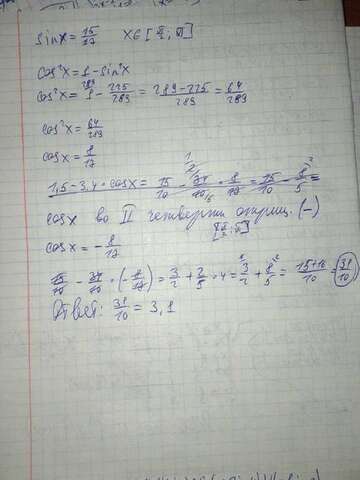 sinx = 15/17 x ∈ [π/2; π]
cos²x = 1 - sin²x
cos²x = 1 - 225/289 = 289-225/289 = 64/289
cos²x = 64/289
cosx = 8/17
1,5 - 3,4 · cosx = 15/10 - 34/10 · 8/17 = 15/10 - 8/5 =
cosx во II четверти отриц. (-)
[π/2; π]
cosx = - 8/17
15/10 - 34/10 · (- 8/17) = 3/2 + 2/5 · 4 = 3/2 + 8/5 = 15+16/10 = 31/10
Ответ: 31/10 = 3,1